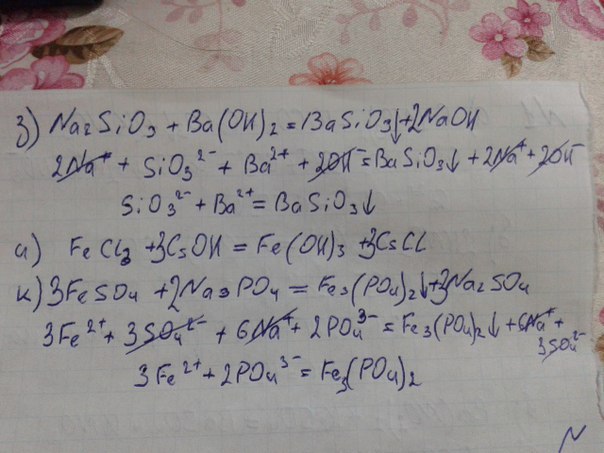 з) Na₂SiO₃ + Ba(OH)₂ = BaSiO₃↓ + 2NaOH
2Na⁺ + SiO₃²⁻ + Ba²⁺ + 2OH⁻ = BaSiO₃↓ + 2Na⁺ + 2OH⁻
SiO₃²⁻ + Ba²⁺ = BaSiO₃↓
и) FeCl₃ + 3CsOH = Fe(OH)₃ + 3CsCl
к) 3FeSO₄ + 2Na₃PO₄ = Fe₃(PO₄)₂↓ + 3Na₂SO₄
3Fe²⁺ + 3SO₄²⁻ + 6Na⁺ + 2PO₄³⁻ = Fe₃(PO₄)₂↓ + 6Na⁺ +
3SO₄²⁻
3Fe²⁺ + 2PO₄³⁻ = Fe₃(PO₄)₂
N